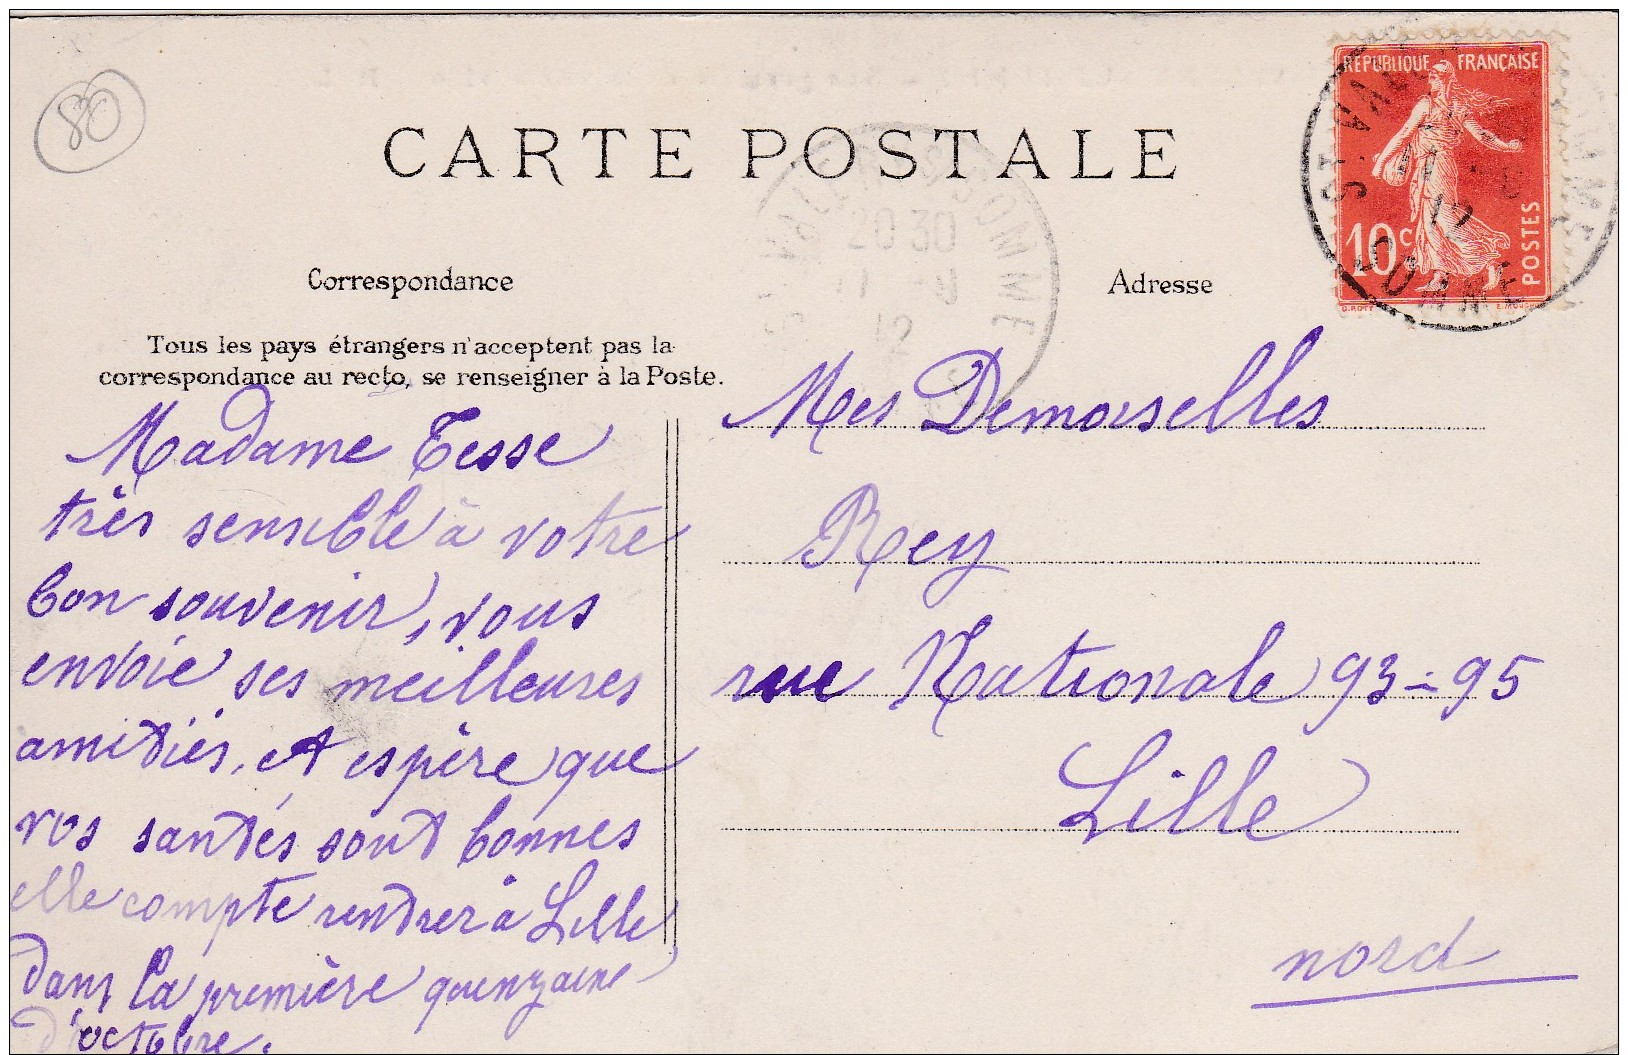 80
CARTE POSTALE
RÉPUBLIQUE FRANÇAISE
10c
POSTES
O.ROTY
SOMME
20 30
11 - 9
12
SOMME
Correspondance
Adresse
Tous les pays étrangers n'acceptent pas la
correspondance au recto, se renseigner à la Poste.
Madame Tesse
très sensible à votre
bon souvenir, vous
envoie ses meilleures
amitiés, et espère que
vos santés sont bonnes
elle compte rentrer à Lille
dans la première quinzaine
d'octobre.
Mes Demoiselles
Rey
rue Nationale 93-95
Lille
nord